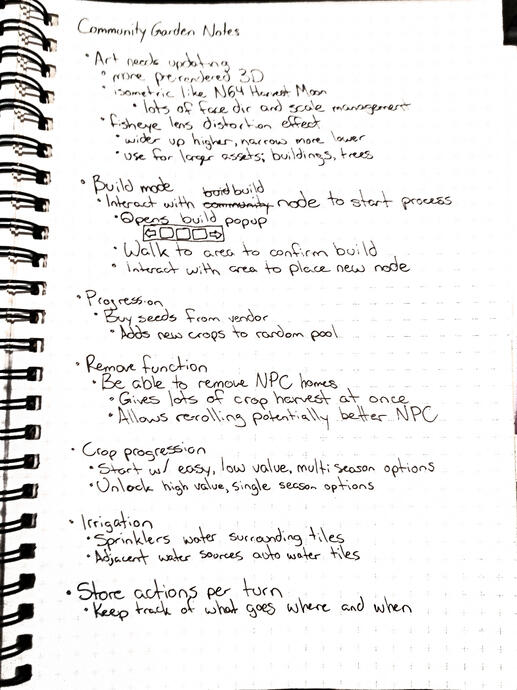 Community Garden Notes
• Art needs updating
• more prerendered 3D
• isometric like N64 Harvest Moon
• lots of face dir and scale management
• fisheye lens distortion effect
• wider up higher, narrow more lower
• use for larger assets; buildings, trees
• Build mode
• Interact with build node to start process
• Opens build popup
• Walk to area to confirm build
• Interact with area to place new node
• Progression
• Buy seeds from vendor
• Adds new crops to random pool
• Remove function
• Be able to remove NPC homes
• Gives lots of crop harvest at once
• Allows rerolling potentially better NPC
• Crop progression
• Start w/ easy, low value, multi season options
• Unlock high value, single season options
• Irrigation
• Sprinklers water surrounding tiles
• Adjacent water sources auto water tiles
• Store actions per turn
• Keep track of what goes where and when